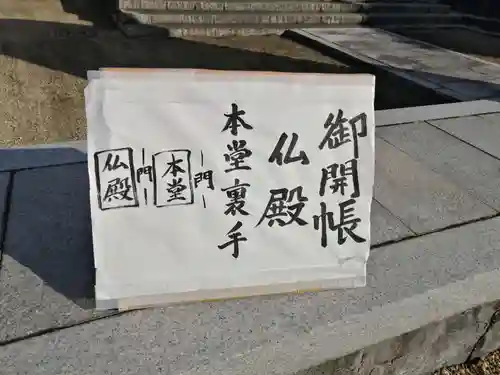 御開帳
仏殿
本堂裏手
門
本堂
門
仏殿